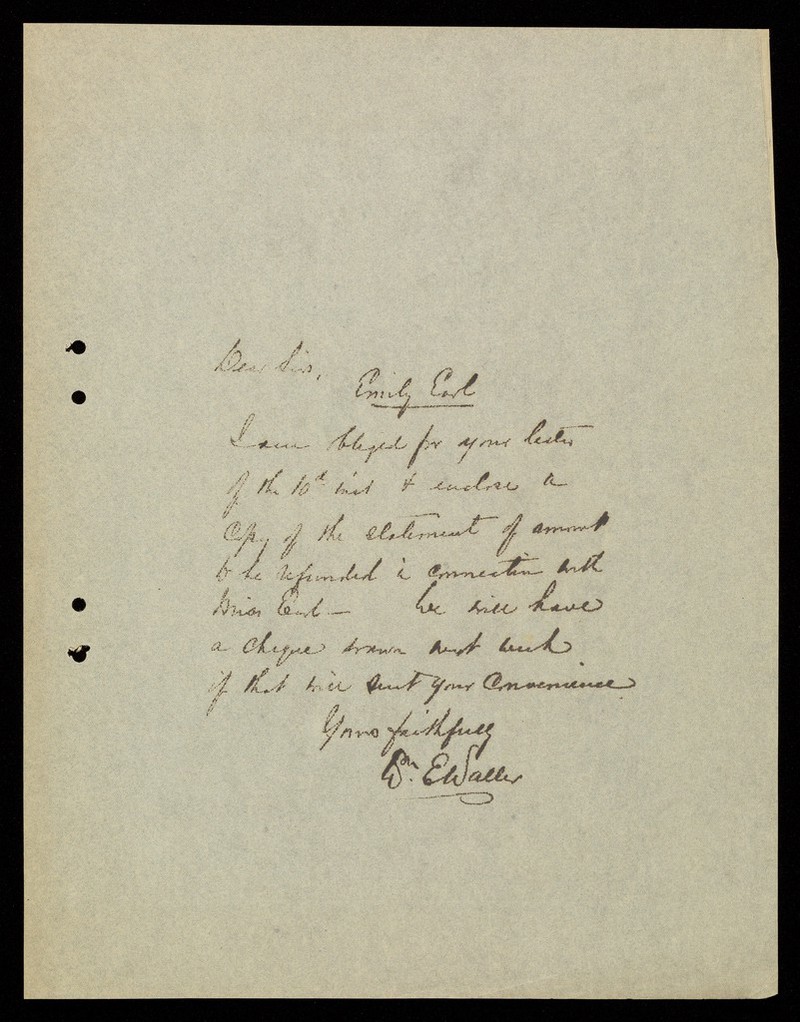 Dear Sirs,
Emily Earl
I am obliged for your letter
of the 10th inst & enclose a
copy of the statement of amount
to be refunded in connection with
Miss Earl — We will have
a cheque drawn next week
if that will suit your convenience
Yours faithfully
Wm. E Waller